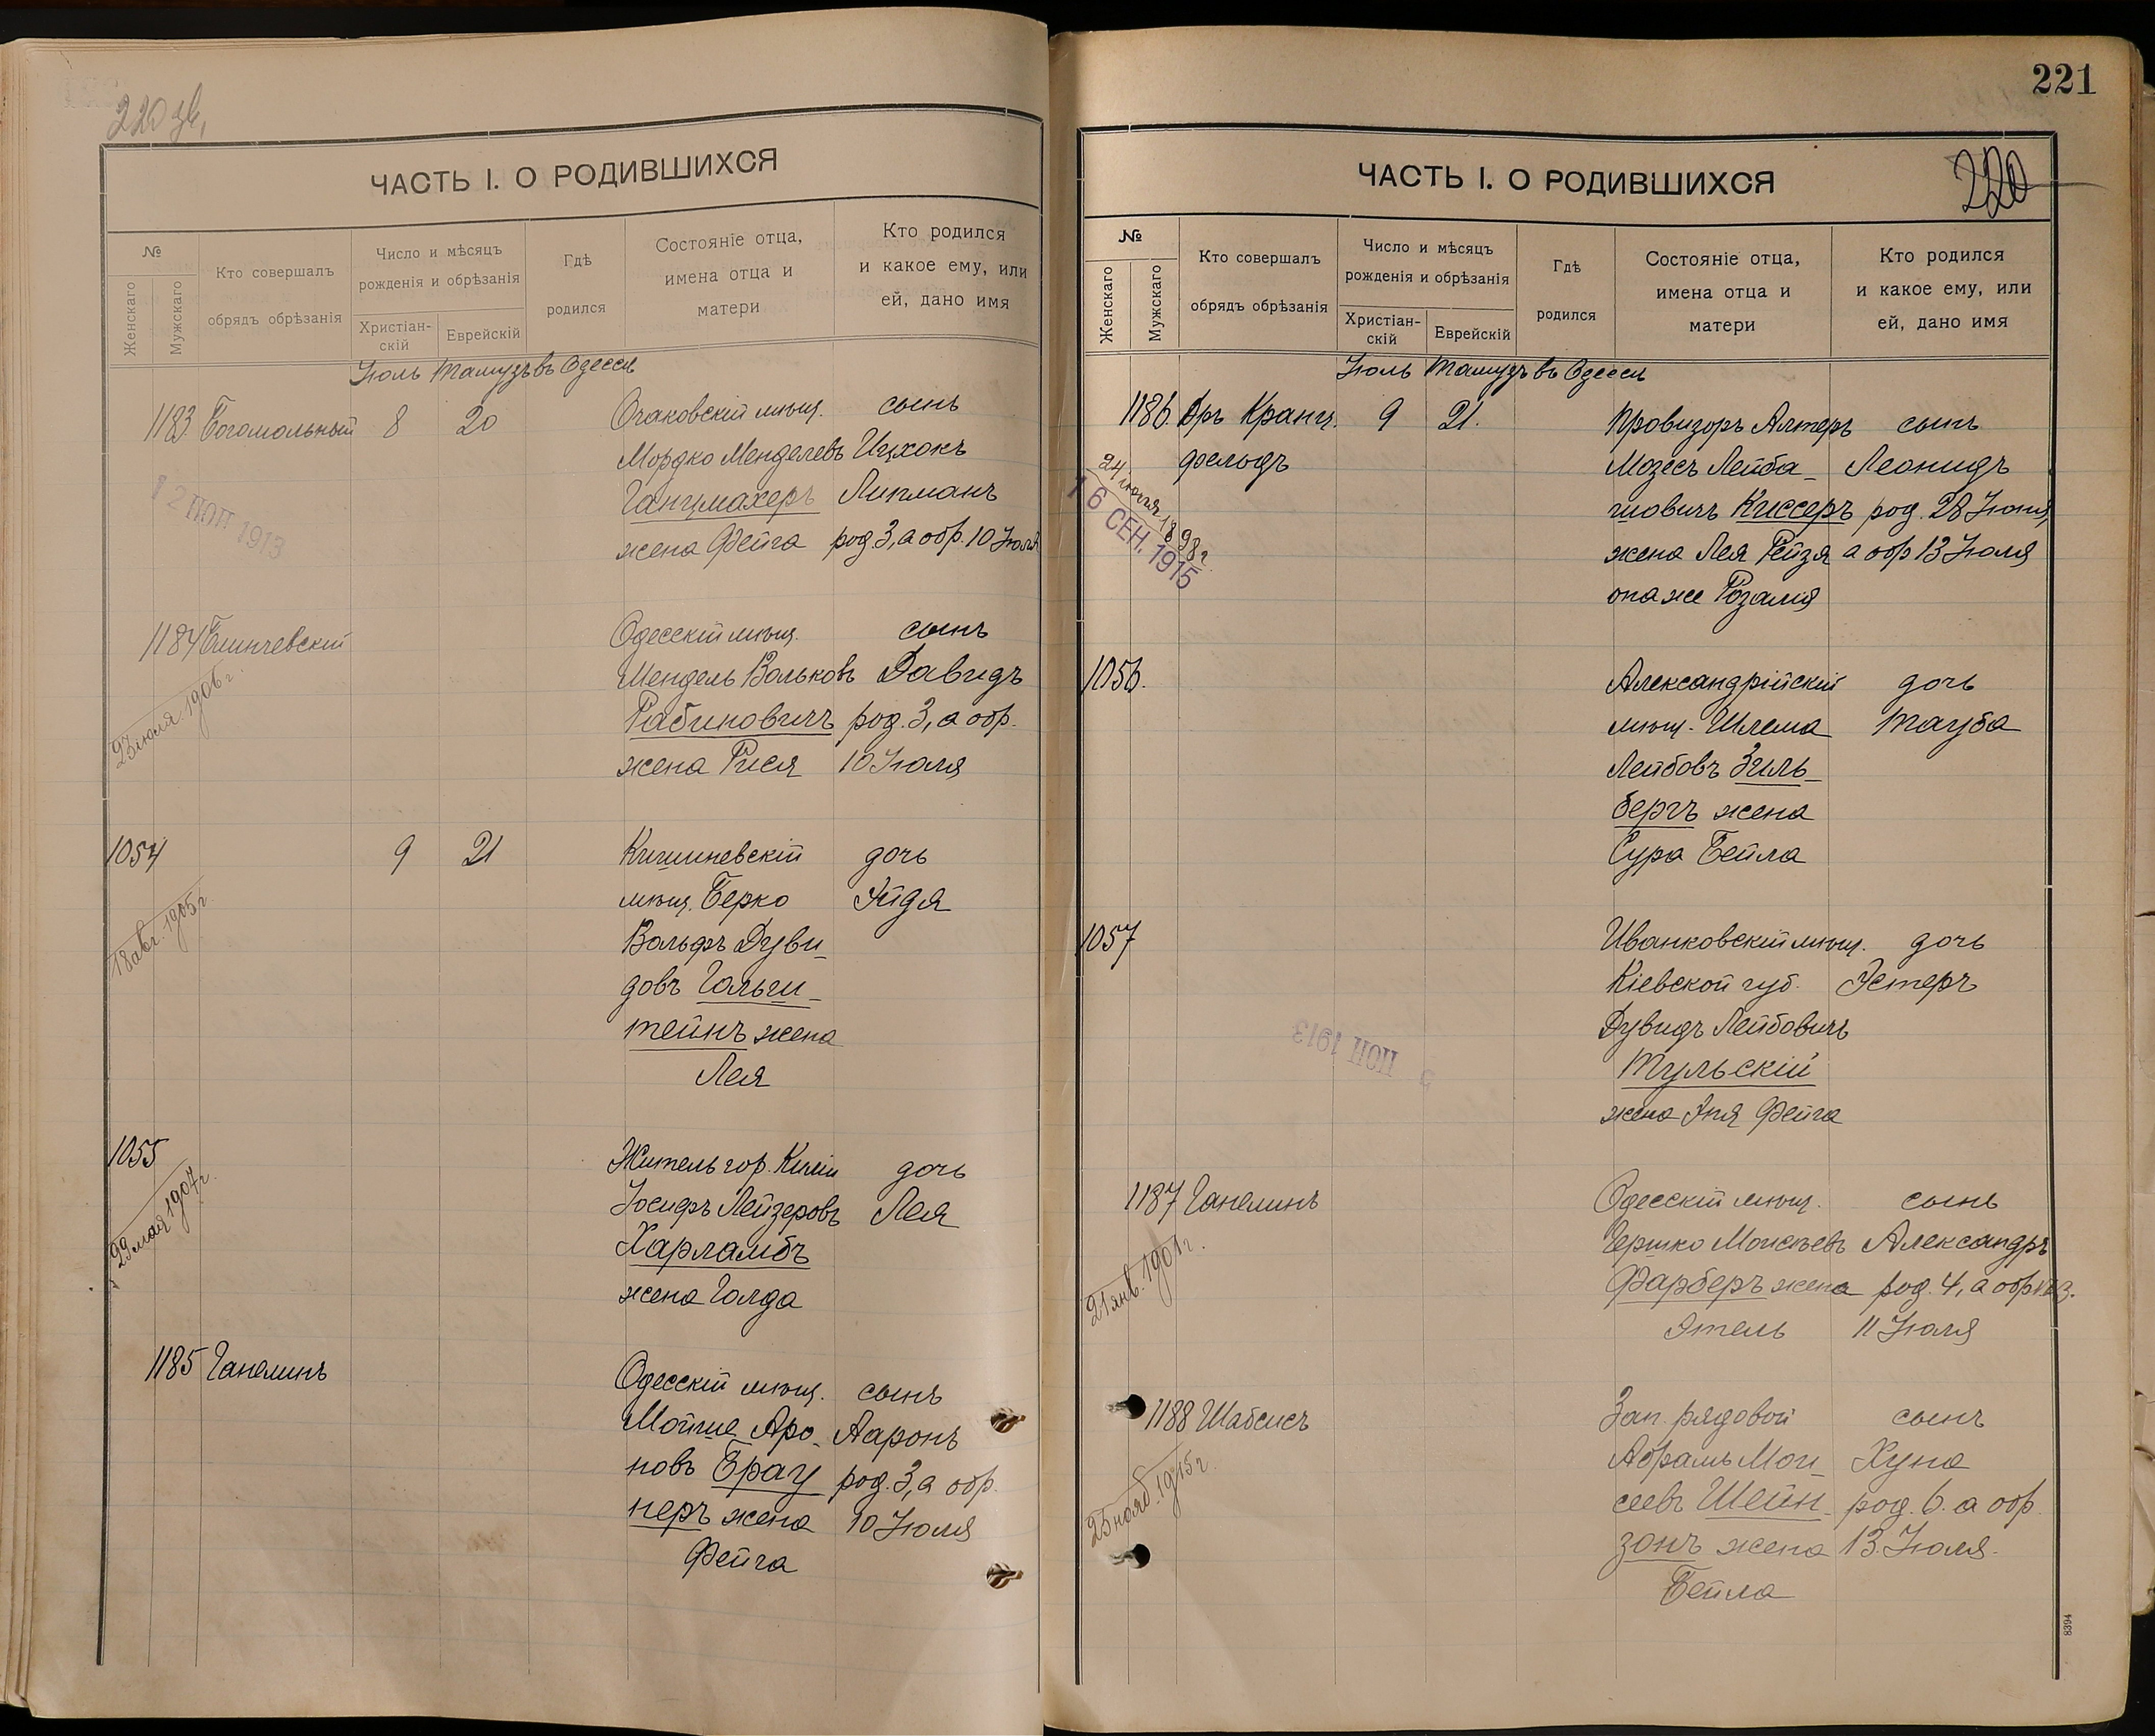 220 зв.
ЧАСТЬ I. О РОДИВШИХСЯ
№
Женскаго
Мужскаго
Кто совершалъ
обрядъ обрѣзанія
Число и мѣсяцъ
рожденія и обрѣзанія
Христіан-
скій
Еврейскій
Гдѣ
родился
Состояніе отца,
имена отца и
матери
Кто родился
и какое ему, или
ей, дано имя
Іюль Тамузъ въ Одессѣ
1183. Богомольный 8 20 Очаковскій мѣщ. сынъ
Мордко Менделевъ Ицхокъ
Ганцмахеръ Липманъ
жена Фейга род 3, а обр. 10 Іюля
12 1913
1184 Блинчевскій Одесскій мѣщ. сынъ
Мендель Вольковъ Давидъ
Рабиновичъ род. 3, а обр.
жена Рися 10 Іюля
23 іюля 1906 г.
1054 9 21 Кишиневскій дочь
мѣщ. Берко Хайдя
Вольфъ Дуви-
довъ Гольш-
тейнъ жена
Лея
18 авг. 1905 г.
1055 Житель гор. Киліи дочь
Іосифъ Лейзеровъ Лея
Харламбъ
жена Голда
29 мая 1907 г.
1185 Ганелинъ Одесскій мѣщ. сынъ
Мойше Аро- Ааронъ
новъ Брау род. 3, а обр.
неръ жена 10 Іюля
Фейга
221
ЧАСТЬ I. О РОДИВШИХСЯ
220
№
Женскаго
Мужскаго
Кто совершалъ
обрядъ обрѣзанія
Число и мѣсяцъ
рожденія и обрѣзанія
Христіан-
скій
Еврейскій
Гдѣ
родился
Состояніе отца,
имена отца и
матери
Кто родился
и какое ему, или
ей, дано имя
Іюль Тамузъ въ Одессѣ
1186. Дръ Кранц. 9 21. Провизоръ Алтеръ сынъ
фельдъ Мозесъ Лейба- Леонидъ
шовичъ Киссеръ род. 28 Іюня,
жена Лея Рейзя а обр 13 Іюля
она же Розалія
24 іюля 1898 г.
16 СЕН. 1915
1056. Александрійскій дочь
мѣщ. Шлема Тауба
Лейбовъ Зиль-
бергъ жена
Сура Бейла
1057 Иванковскій мѣщ. дочь
Кіевской губ. Эстеръ
Дувидъ Лейбовичъ
Тульскій
жена Фейга
1913
1187 Ганелинъ Одесскій мѣщ. сынъ
Гершко Моисѣевъ Александръ
Фарберъ жена род. 4, а обр
Этель 11 Іюля
21 янв. 1901 г.
1188 Шабсисъ Зап. рядовой сынъ
Абрамъ Мои- Хуна
сеевъ Шейн- род. 6. а обр
зонъ жена 13. Іюля.
Бейла
25 нояб. 1915 г.
8394